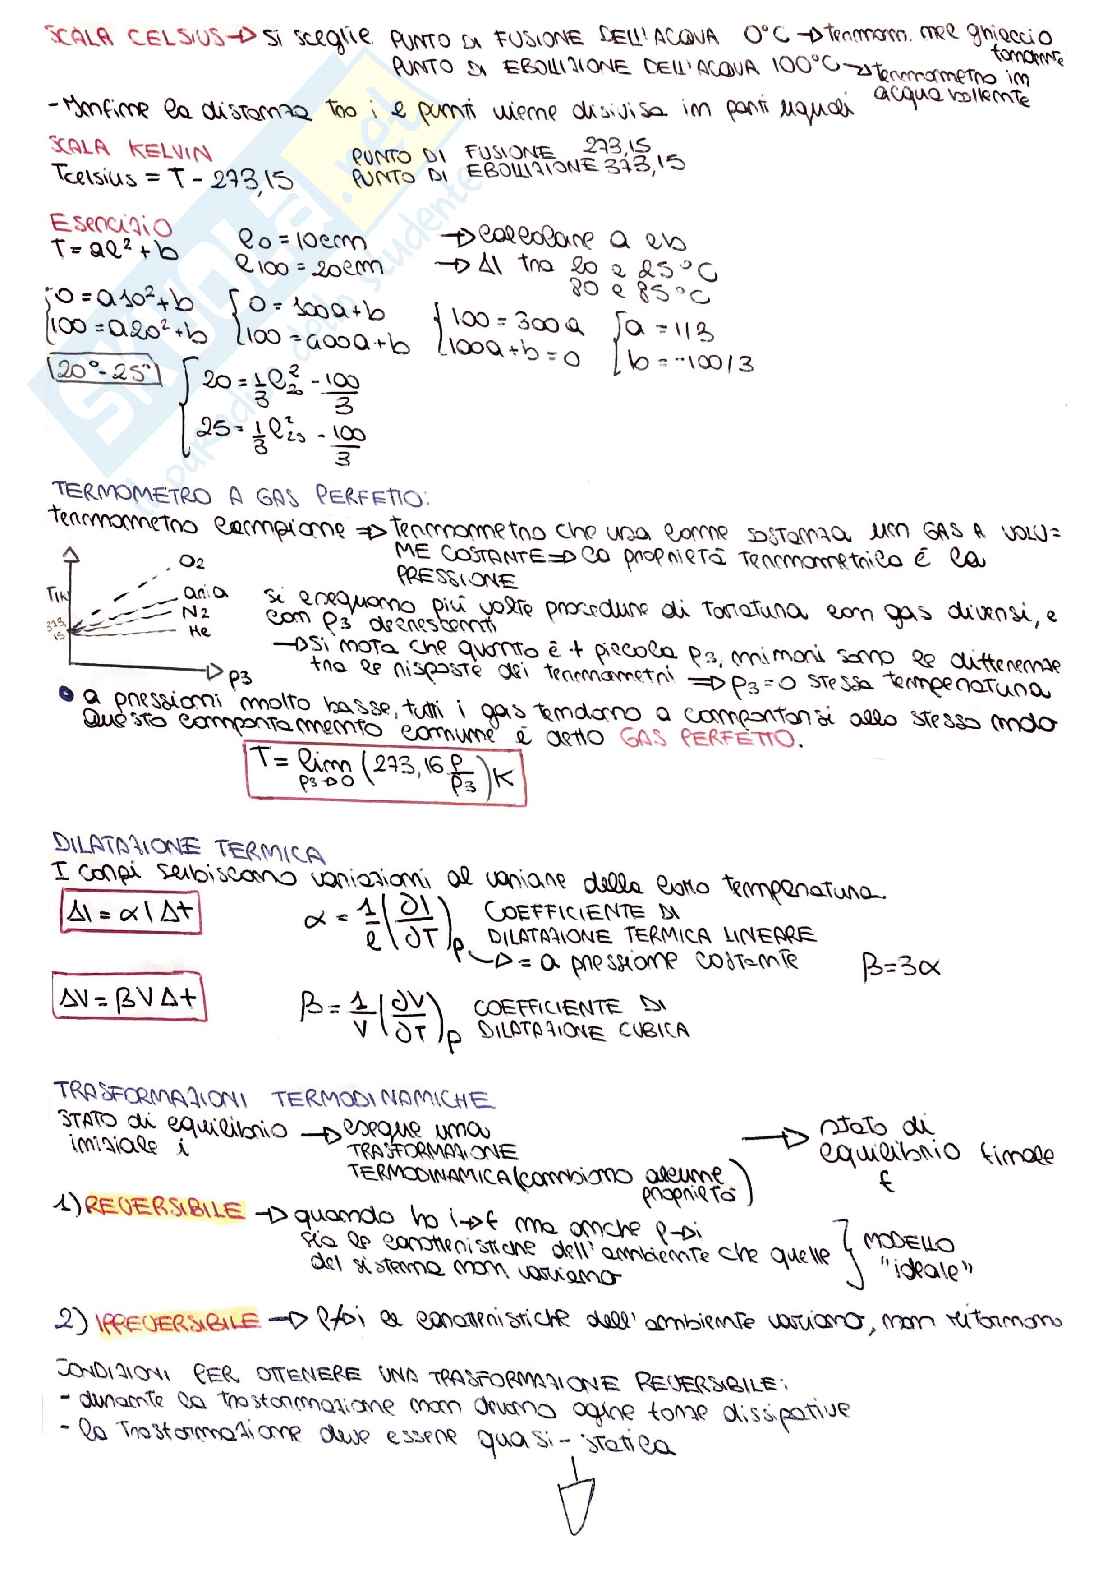 SCALA CELSIUS → si sceglie PUNTO DI FUSIONE DELL'ACQUA 0°C → termom. nel ghiaccio fondente
PUNTO DI EBOLLIZIONE DELL'ACQUA 100°C → termometro in acqua bollente
- Infine la distanza tra i 2 punti viene divisa in parti uguali
SCALA KELVIN
PUNTO DI FUSIONE 273,15
Tcelsius = T - 273,15
PUNTO DI EBOLLIZIONE 373,15
Esercizio
T = al² + b
l0 = 10cm
l100 = 20cm
→ calcolare a e b
→ Δl tra 20 e 25°C
80 e 85°C
0 = a10² + b
100 = a20² + b
0 = 100a + b
100 = 400a + b
100 = 300a
100a + b = 0
a = 1/3
b = -100/3
20° - 25°
20 = 1/3 l²20 - 100/3
25 = 1/3 l²25 - 100/3
TERMOMETRO A GAS PERFETTO:
termometro campione ⇒ termometro che usa come sostanza un GAS A VOLU=
ME COSTANTE ⇒ la proprietà termometrica è la
PRESSIONE
T(K)
373,15
O2
aria
N2
He
p3
si eseguono più volte procedure di taratura con gas diversi, e
con p3 decrescenti
→ Si nota che quanto è + piccola p3, minori sono le differenze
tra le risposte dei termometri ⇒ p3 = 0 stessa temperatura
• a pressioni molto basse, tutti i gas tendono a comportarsi allo stesso modo
Questo comportamento comune è detto GAS PERFETTO.
T = lim p3→0 (273,16 p/p3) K
DILATAZIONE TERMICA
I corpi subiscono variazioni al variare della loro temperatura.
Δl = α l Δt
α = 1/l (∂l/∂T)p
COEFFICIENTE DI
DILATAZIONE TERMICA LINEARE
→ = a pressione costante
β = 3α
ΔV = β V Δt
β = 1/V (∂V/∂T)p
COEFFICIENTE DI
DILATAZIONE CUBICA
TRASFORMAZIONI TERMODINAMICHE
STATO di equilibrio iniziale i → esegue una
TRASFORMAZIONE
TERMODINAMICA (cambiano alcune proprietà)
→ stato di
equilibrio finale
f
1) REVERSIBILE → quando ho i→f ma anche f→i
sia le caratteristiche dell'ambiente che quelle
del sistema non variano
MODELLO
"ideale"
2) IRREVERSIBILE → f↛i le caratteristiche dell'ambiente variano, non ritornano
CONDIZIONI PER OTTENERE UNA TRASFORMAZIONE REVERSIBILE:
- durante la trasformazione non devono agire forze dissipative
- la trasformazione deve essere quasi-statica